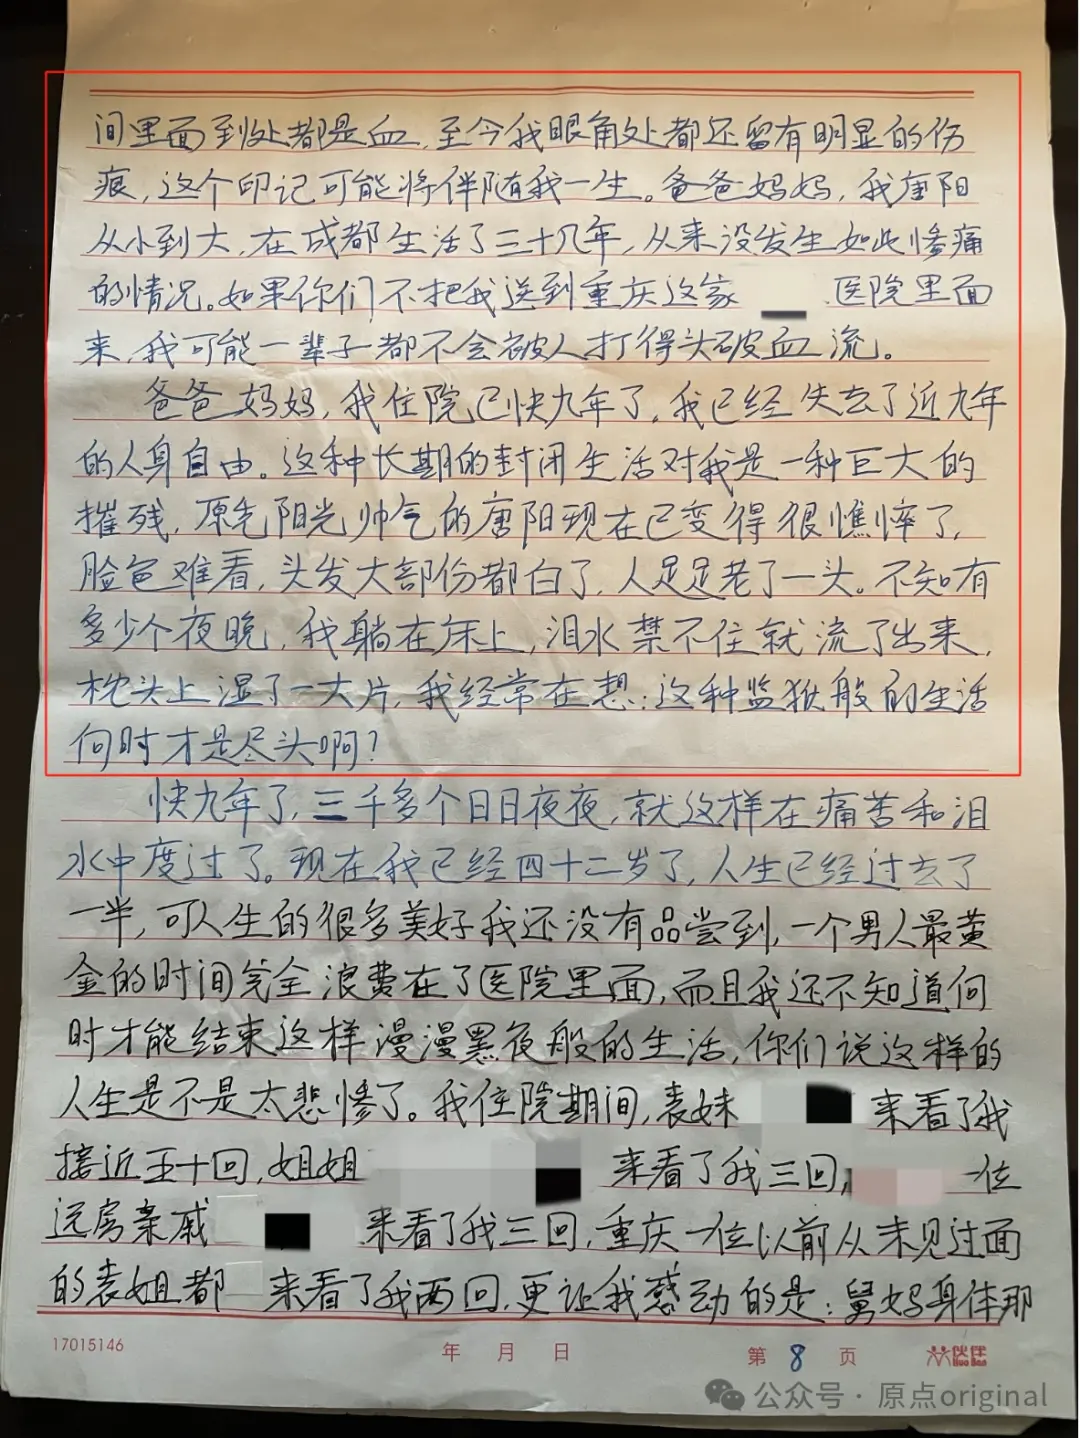 间里面到处都是血，至今我眼角处都还留有明显的伤
痕，这个印记可能将伴随我一生。爸爸妈妈，我唐阳
从小到大，在成都生活了三十几年，从来没发生如此惨痛
的情况。如果你们不把我送到重庆这家 医院里面
来，我可能一辈子都不会被人打得头破血流。
爸爸妈妈，我住院已快九年了，我已经失去了近九年
的人身自由。这种长期的封闭生活对我是一种巨大的
摧残，原先阳光帅气的唐阳现在已变得很憔悴了，
脸色难看，头发大部份都白了，人足足老了一头。不知有
多少个夜晚，我躺在床上，泪水禁不住就流了出来，
枕头上湿了一大片，我经常在想：这种监狱般的生活
何时才是尽头啊？
快九年了，三千多个日日夜夜，就这样在痛苦和泪
水中度过了。现在我已经四十二岁了，人生已经过去了
一半，可人生的很多美好我还没有品尝到，一个男人最黄
金的时间完全浪费在了医院里面，而且我还不知道何
时才能结束这样漫漫黑夜般的生活，你们说这样的
人生是不是太悲惨了。我住院期间，表妹 来看了我
接近五十回，姐姐 来看了我三回， 一位
远房亲戚 来看了我三回，重庆一位以前从未见过面
的表姐都 来看了我两回，更让我感动的是：舅妈身体那
17015146 年 月 日 第 8 页
公众号 · 原点original